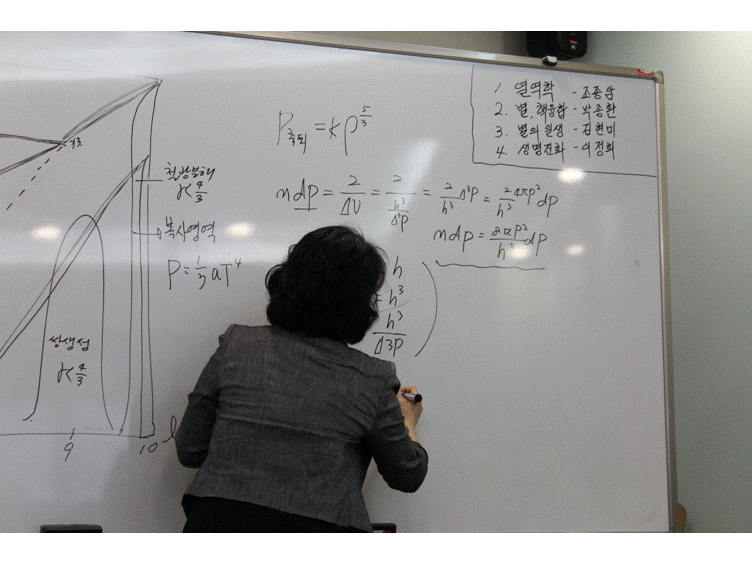 1. 열역학 - 조종암
2. 별, 핵융합 - 박종환
3. 별의 일생 - 김현미
4. 생명진화 - 이정희
P축퇴 = Kρ^5/3
ndp = 2/ΔV = 2/(h³/Δ³P) = 2/h³ Δ³P = 2·4πp²/h³ dp
ndp = 8πp²/h³ dp
철광분해
γ<4/3
복사영역
P = 1/3 aT⁴
h
= h³
h³/Δ3P
쌍생성
γ<4/3
9
10